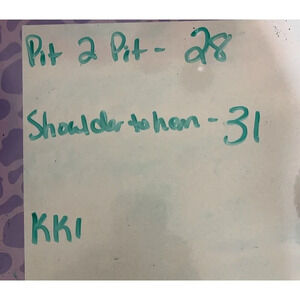 Pit 2 Pit - 28
Shoulder to hem - 31
KK1